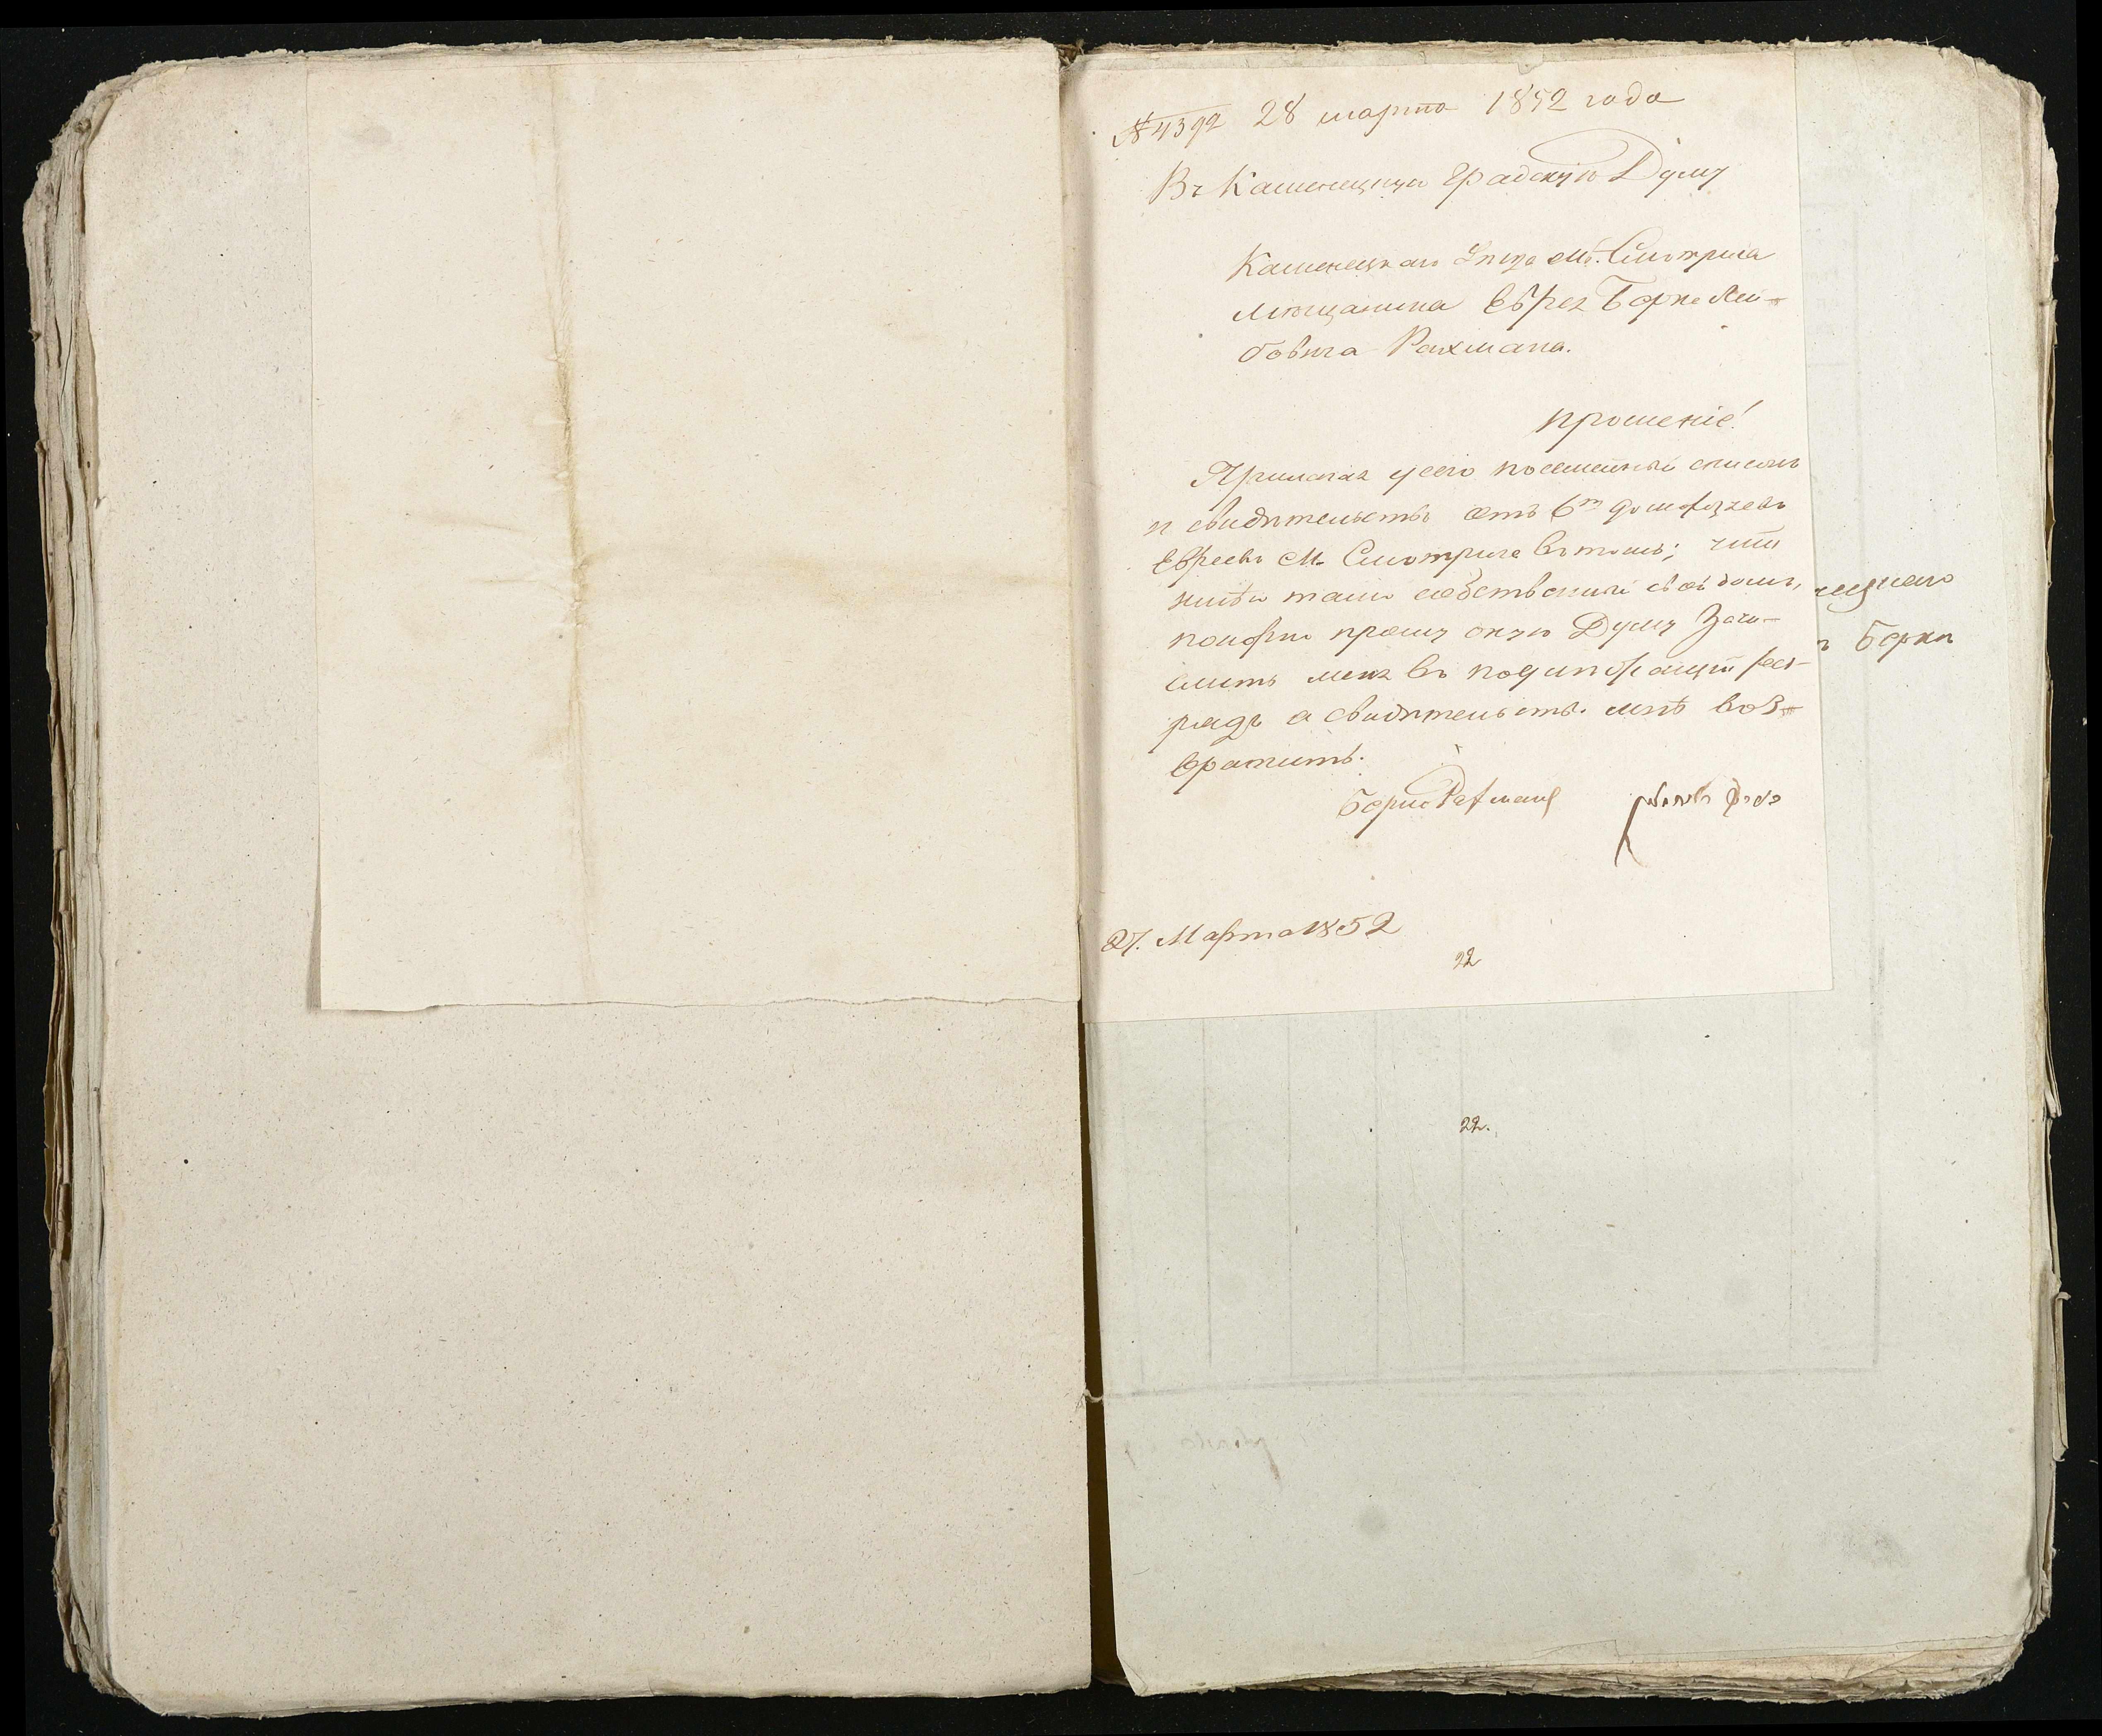 № 4392 28 марта 1852 года
Въ Каменецкую Градскую Думу
Каменецкаго Уезда м. Смотрича
мещанина Еврея Берко Лей-
бовича Рахмана.
прошеніе!
Прилагая у сего посемейный списокъ
и свидѣтельство отъ 6ти домохозяевъ
Евреевъ М. Смотриче въ томъ; что
имѣю тамъ собственный свой домъ,
прошу оную Думу Зачи-
слить меня въ подлежащій раз-
рядъ а свидѣтельств. мнѣ воз-
вратить.
Берко Рахман
27. Марта 1852
22
22.
Берки